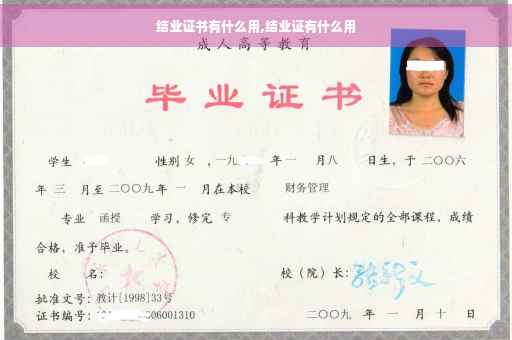 结业证书有什么用,结业证有什么用
成人高等教育
毕业证书
学生 性别 女 ,一九 年 一 月八 日生，于 二〇〇六
年 三 月至 二〇〇九年 一 月在本校 财务管理
专业 函授 学习，修完 专 科教学计划规定的全部课程，成绩
合格，准予毕业。
校 名： 校（院）长：
批准文号：教计[1998]33号
证书编号： 06001310 二〇〇九 年 一 月 十 日